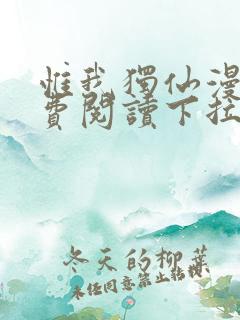 惟我獨仙漫
費閱讀下拉
冬天的柳葉
未经同意禁止转载